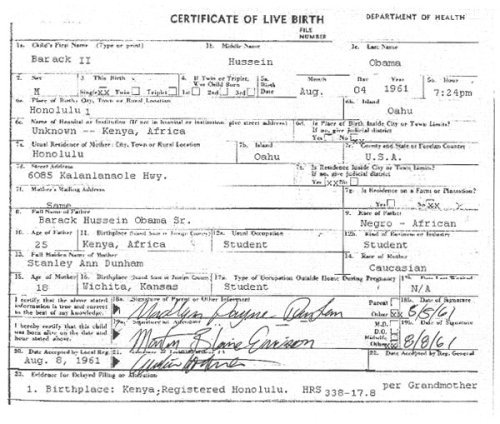 CERTIFICATE OF LIVE BIRTH
DEPARTMENT OF HEALTH
FILE NUMBER
1a. Child's First Name (Type or print) 1b. Middle Name 1c. Last Name
Barack II Hussein Obama
2. Sex 3 This Birth 4. If Twin or Triplet, Was Child Born 5a. Birth Date Month Day Year 5b. Hour
M Single XX Twin Triplet 1st 2nd 3rd Aug. 04 1961 7:24pm
6a. Place of Birth: City, Town or Rural Location 6b. Island
Honolulu 1 Oahu
6c. Name of Hospital or Institution (If not in hospital or institution, give street address) 6d. Is Place of Birth Inside City or Town Limits? If no, give judicial district
Unknown -- Kenya, Africa Yes No XX
7a. Usual Residence of Mother: City, Town or Rural Location 7b. Island 7c. County and State or Foreign Country
Honolulu Oahu U.S.A.
7d. Street Address 7e. Is Residence Inside City or Town Limits? If no, give judicial district
6085 Kalanianaole Hwy. Yes XX No
7f. Mother's Mailing Address 7g. Is Residence on a Farm or Plantation?
Same Yes No XX
8. Full Name of Father 9. Race of Father
Barack Hussein Obama Sr. Negro - African
10. Age of Father 11. Birthplace 12a. Usual Occupation 12b. Kind of Business or Industry
25 Kenya, Africa Student Student
13. Full Maiden Name of Mother 14. Race of Mother
Stanley Ann Dunham Caucasian
15. Age of Mother 16. Birthplace 17a. Type of Occupation Outside Home During Pregnancy 17b. Date Last Worked
18 Wichita, Kansas Student N/A
I certify that the above stated information is true and correct to the best of my knowledge. 18a. Signature of Parent or Other Informant Parent Other XX 18b. Date of Signature
Madelyn Payne Dunham 8/5/61
I hereby certify that this child was born alive on the date and hour stated above. 19a. Signature of Attendant M.D. D.O. Midwife Other 19b. Date of Signature
8/8/61
20. Date Accepted by Local Reg. 21. 22. Date Accepted by Reg. General
Aug. 8, 1961
23. Evidence for Delayed Filing or Alteration
1. Birthplace: Kenya;Registered Honolulu. HRS 338-17.8 per Grandmother